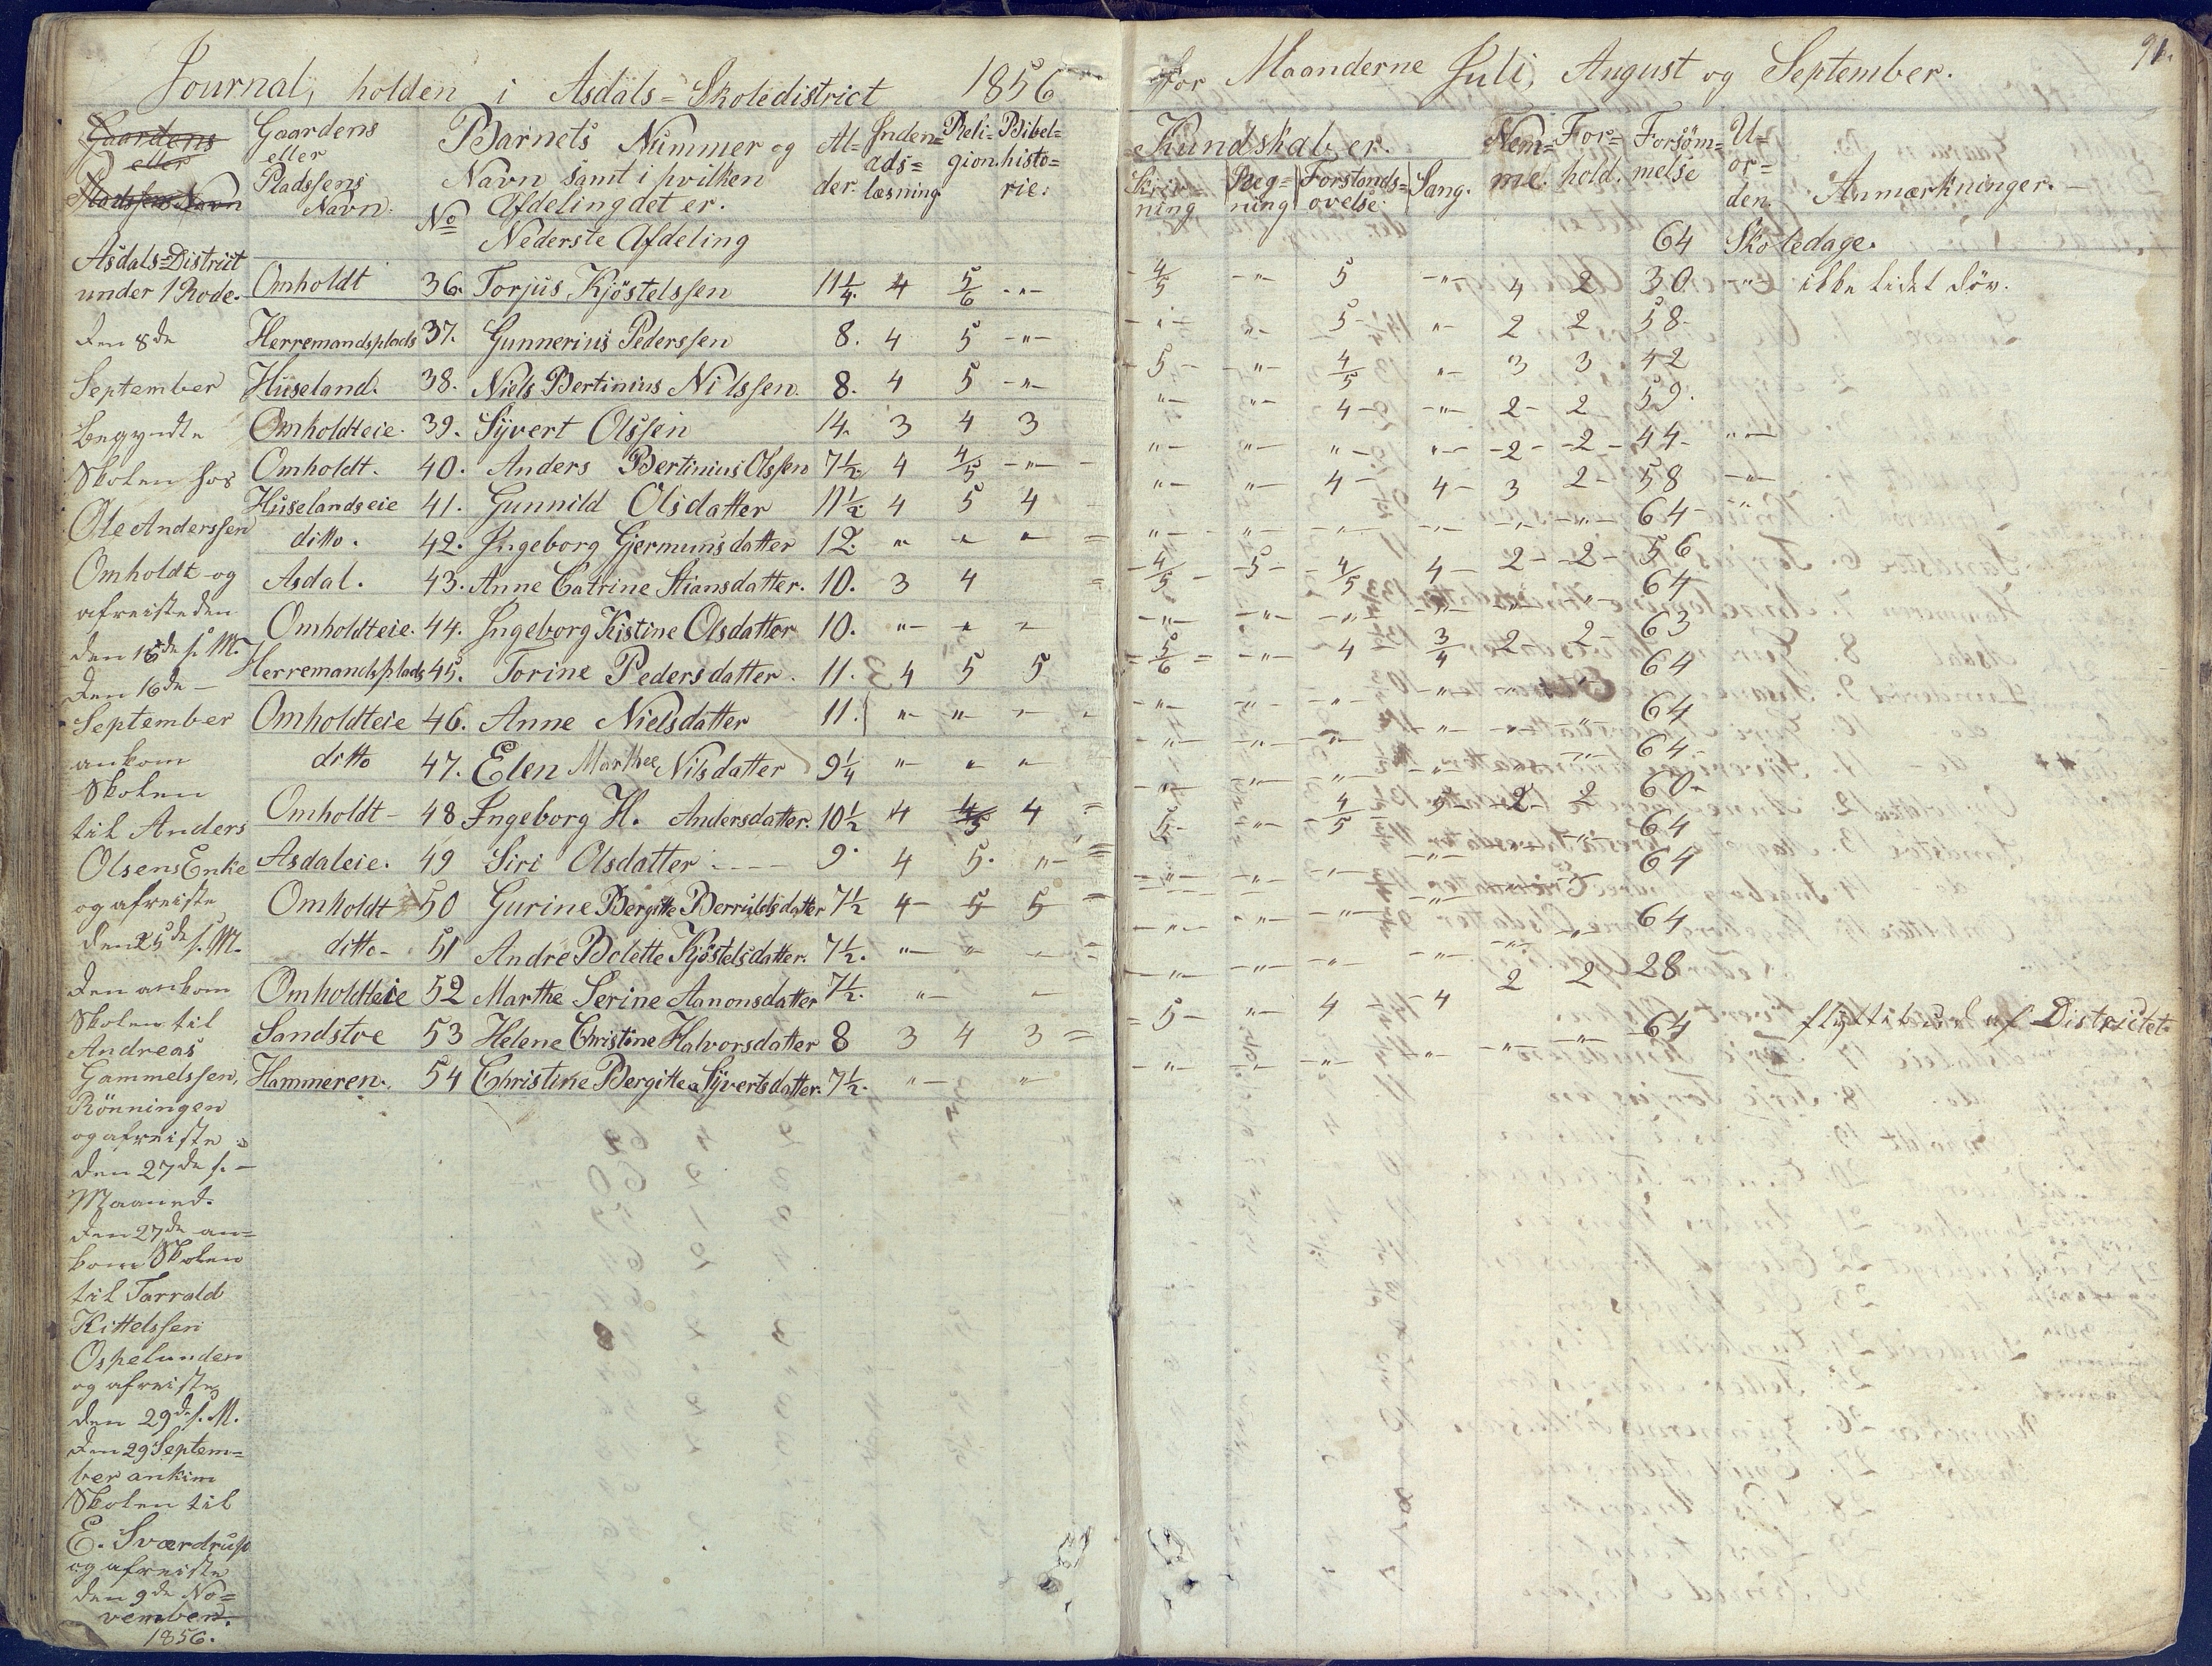 Journal, holden i Asdals=Skoledistrict 1856
for Maanderne Juli, August og September. 91.
Gaardens eller Pladssens Navn
Gaardens eller Pladssens Navn.
No
Barnets Nummer og Navn samt i hvilken Afdeling det er.
Al=der.
Inden=ads=læsning
Reli=gion
Bibel=histo=rie.
Kundskaber.
Skriv=ning
Reg=ning
Forstands=øvelse.
Sang.
Nem=me.
For=hold.
Forsöm=melse
U=or=den.
Anmærkninger.
Nederste Afdeling
64 Skoledage.
Omholdt 36. Torjus Kjöstelssen 11 1/4. 4 5/6 -"- 4/5 -"- 5 -"- 4 2 30 " ikke lidet döv.
Herremandsplads 37. Gunnerius Pederssen 8. 4 5 -"- -"- "- 5- "- 2 2 58-
Huseland. 38. Niels Bertinius Nilssen. 8. 4 5 -"- -5- -"- 4/5 "- 3 3 42
Omholdteie. 39. Syvert Olssen 14. 3 4 3 "- "- 4- -"- 2- 2 59.
Omholdt. 40. Anders Bertinius Olssen 7 1/2. 4 4/5 -"- "- "- "- "- -2- -2- 44- "-
Huselandseie 41. Gunnild Olsdatter 11 1/2. 4 5 4 "- "- 4- 4- 3 2- 58 -"-
ditto. 42. Ingeborg Gjermunsdatter 12. " " " "- -"- -"- -"- -"- -"- 64- "
Asdal. 43. Anne Catrine Stiansdatter. 10. 3 4 4/5 - 5- 4/5 4- 2- -2- 56
Omholdteie. 44. Ingeborg Kistine Olsdatter 10. "- " " -"- -"- -"- -"- -"- " 64-
Herremandsplads 45. Torine Pedersdatter. 11. 4 5 5 5/6 -"- 4 3/4 2 2- 63
Omholdteie 46. Anne Nielsdatter 11. "- "- "- -"- -"- -"- -"- " " 64
ditto 47. Elen Marthee Nilsdatter 9 1/4 "- " " -"- -"- -"- -"- -"- -"- 64
Omholdt- 48 Ingeborg H. Andersdatter. 10 1/2 4 4/5 4
Asdaleie. 49 Siri Olsdatter 9. 4 5. "-
Omholdt 50 Gurine Bergitte Berruldsdatter 7 1/2 4- 5 5
ditto- 51 Andre Bolette Kjöstelsdatter. 7 1/2. "- " "
Omholdteie 52 Marthe Serine Aanonsdatter 7 1/2. "- "
Sandstøe 53 Helene Christine Halvorsdatter 8 3 4 3 5- "- 4 -4 2 2 28
Hammeren. 54 Christine Bergitte Syvertsdatter. 7 1/2. "- " -"- -"- -"- -"- -"- -"- 64 flyttet ud af Districtet.
64-
60-
64
64
64
Asdals=District
under 1 Rode.
Den 8de
September
begyndte
Skolen hos
Ole Anderssen
Omholdt og
afreiste den
den 16de s. M.
Den 16de -
September
ankom
Skolen
til Anders
Olsens Enke
og afreiste
den 25de s. M.
Den ankom
Skolen til
Andreas
Gammelssen,
Rönningen
og afreiste
den 27de s. -
Maaned.
Den 27de an=
kom Skolen
til Tarrald
Kittelssen
Ospelunden
og afreiste
den 29de s. M.
Den 29 Septem=
ber ankom
Skolen til
E. Sværdrup
og afreiste
den 9de No=
vember.
1856.